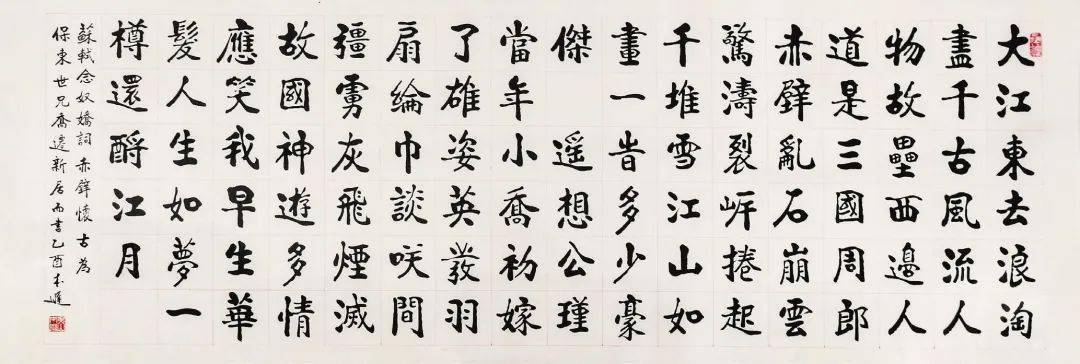 大江東去浪淘
盡千古風流人
物故壘西邊人
道是三國周郎
赤壁亂石崩雲
驚濤裂岸捲起
千堆雪江山如
畫一旹多少豪
傑 遥想公瑾
當年小喬初嫁
了雄姿英發羽
扇綸巾談咲間
彊虜灰飛煙滅
故國神遊多情
應笑我早生華
髮人生如夢一
樽還酹江月
蘇軾念奴嬌詞赤壁懷古為
保東世兄喬遷新居而書乙酉本進